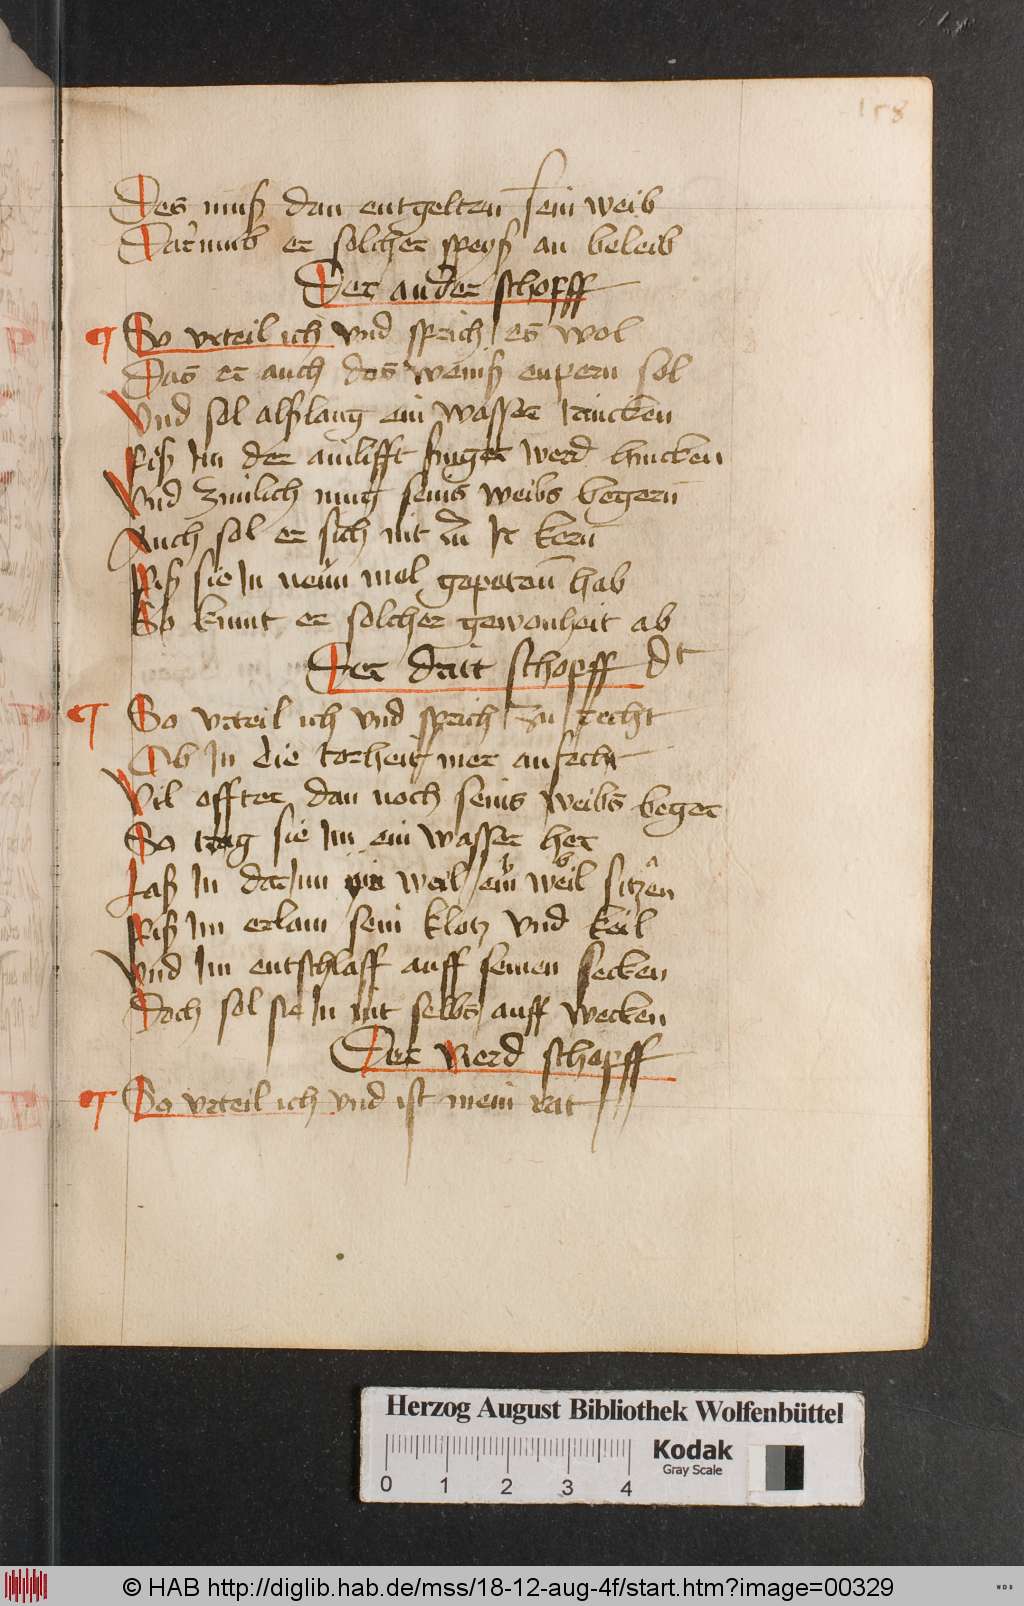 158
Des muß dan entgelten sein weib
Darumb er solcher speyß an beleib
Der ander schopff
So vrteil ich vnd sprich es wol
Das er auch des weins enpern sol
Vnd sol alßlang ein wasser trincken
Piß Im der ainlifft finger werd hincken
Vnd zimlich mug seins weibs begern
Auch sol er sich nit zu Ir kern
Piß sie In neun mol gepeten hab
So kumt er solcher gewonheit ab
Der drit schopff dt
So vrteil ich vnd sprich zu recht
Ob In die torheit mer anfecht
Vil offter dan noch seins weibs beger
So trag sie Im ein wasser her
Laß In darInn weil ein weil sitzen
Piß Im erlam sein klotz vnd keil
Vnd Im entschlaff auff seinen secken
Doch sol sie In nit selbs auff wecken
Der vierd schopff
So vrteil ich vnd ist mein rat
Herzog August Bibliothek Wolfenbüttel
Kodak
Gray Scale
0 1 2 3 4
© HAB http://diglib.hab.de/mss/18-12-aug-4f/start.htm?image=00329